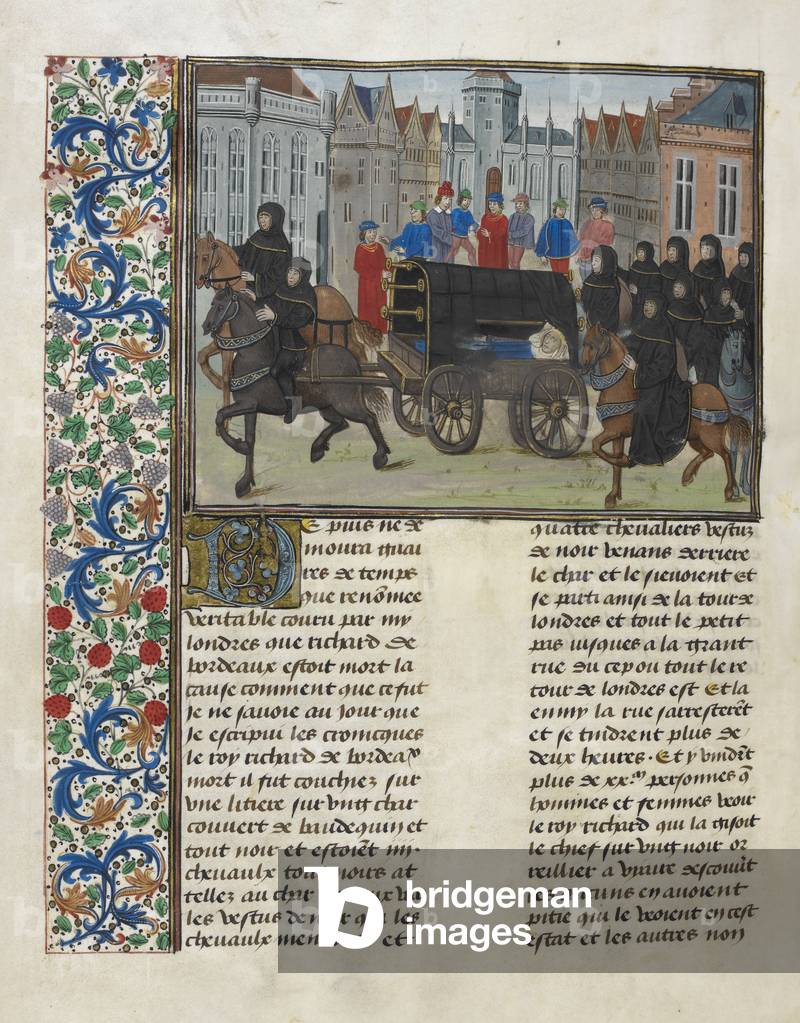 Et puis ne de
moura guai
res de temps
que renōmee
veritable couru par my
londres que richard de
bordeaux estoit mort la
cause comment que ce fut
Je ne savoie au Jour que
Je escripui les cronicques
le roy richard de bordeaỿ
mort il fut couchiez sur
vne litiere sur vng char
couvert de baudequin et
tout noir et estoiēt iiij.
chevaulx tous noirs at
tellez au char
les vestus de noir qui les
chevaulx men et
quattre chevaliers vestuz
de noir venans derriere
le char et le sievoient Et
se parti ainsi de la tour de
londres et tout le petit
pas iusques a la grant
rue du cep ou tout le re
tour de londres est Et la
en my la rue sarresterēt
et se tindrent plus de
deux heures. Et y vindrēt
plus de xx.m personnes q̄
hommes et femmes veoir
le roy richard qui la gisoit
le chief sur vng noir or
reillier a viaire descouūt
en avoient
pitie qui le veoient en cest
estat et les autres non
bridgeman
images